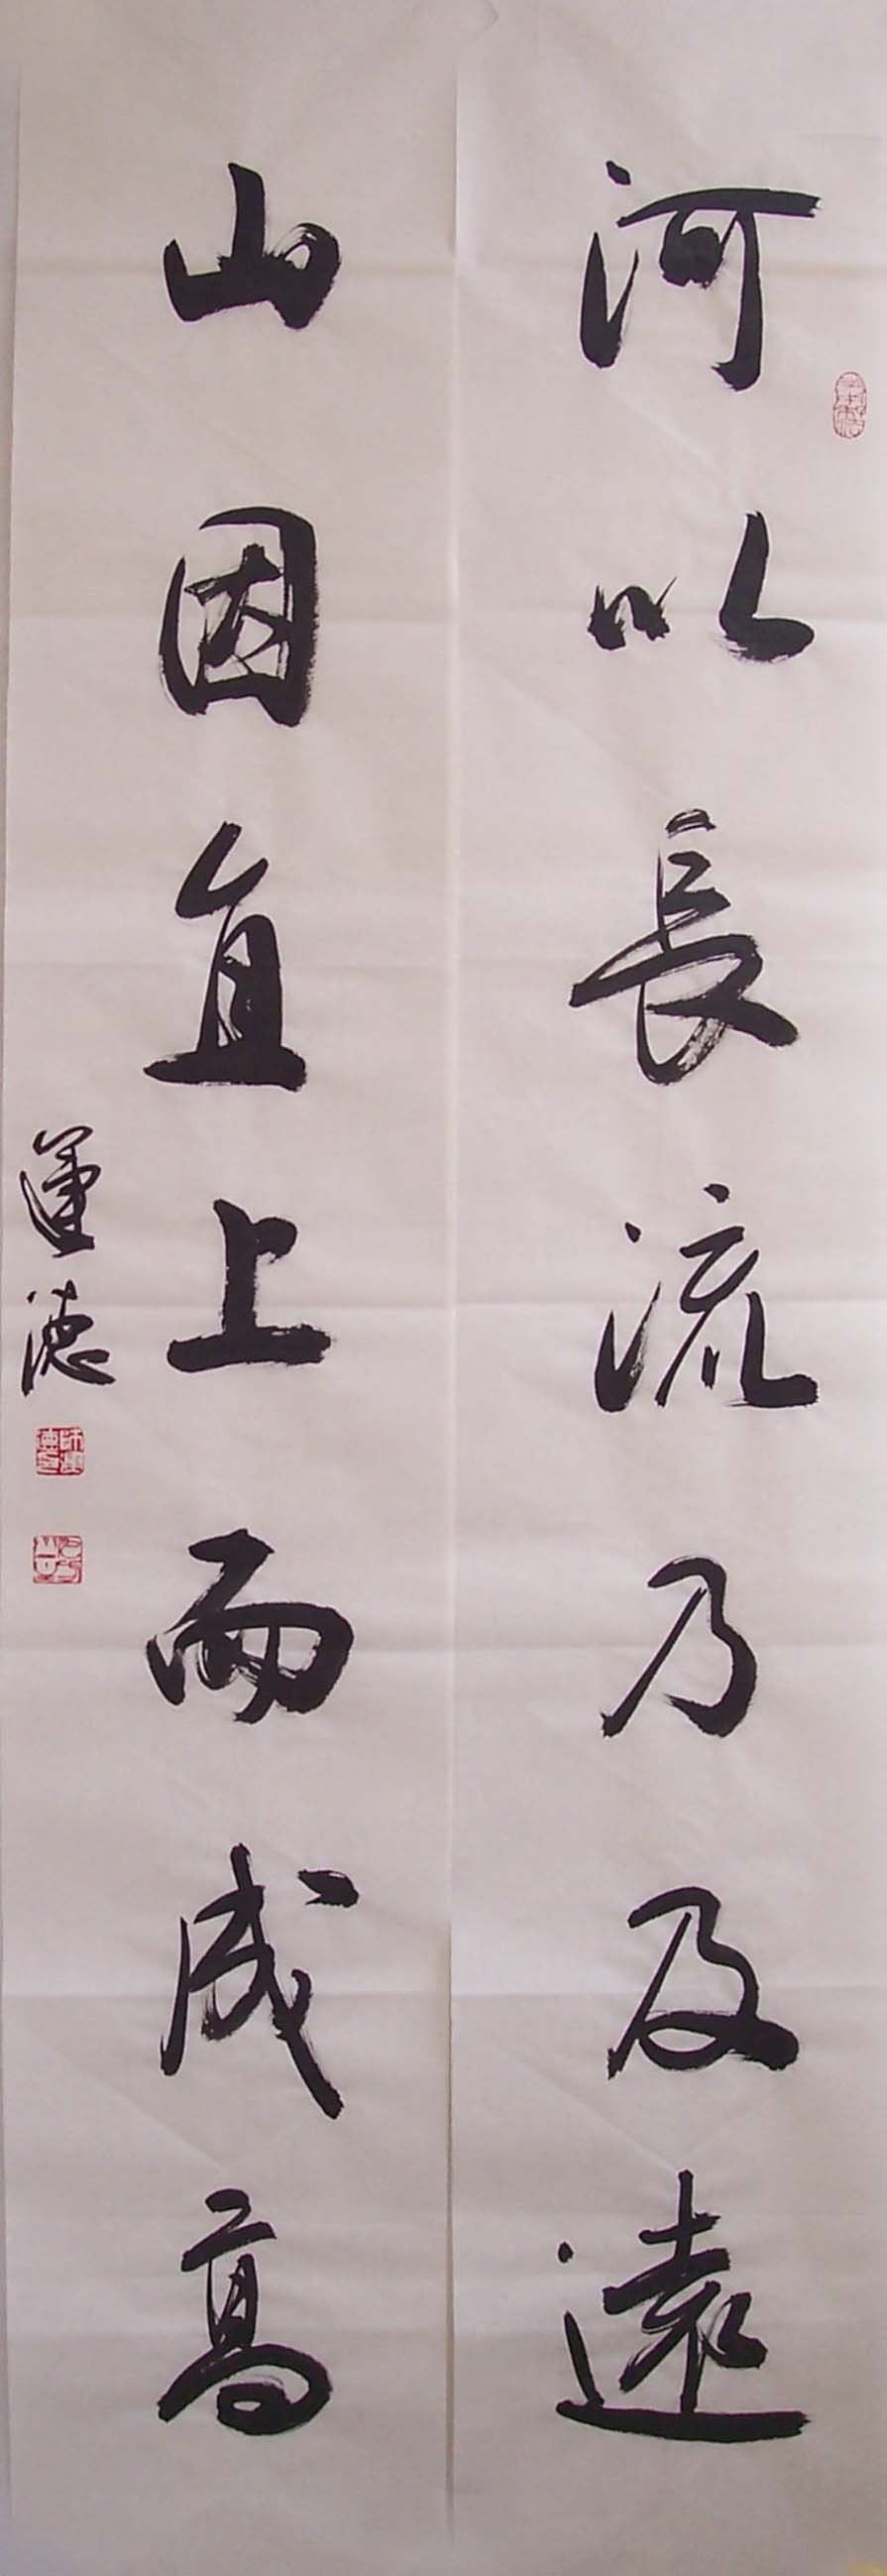 河以長流乃及遠
山因直上而成高
運德